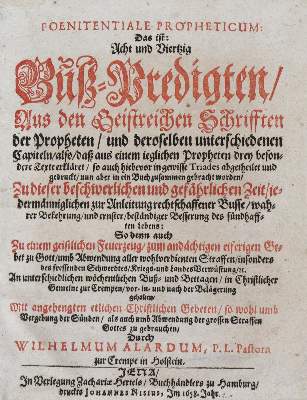 POENITENTIALE PROPHETICUM:
Das ist:
Acht und Viertzig
Buß-Predigten/
Aus den Geistreichen Schrifften
der Propheten/ und deroselben unterschiedenen
Capiteln/ also/ daß aus einem jeglichen Propheten drey beson-
dere Texte erkläret/ so auch hiebevor in gewisse Triades abgetheilet und
gedruckt/ nun aber in ein Buch zusammen gebracht worden/
Zu dieser beschwerlichen und gefährlichen Zeit/ je-
dermänniglichen zur Anleitung rechtschaffener Busse/ wah-
rer Bekehrung/ und ernster/ beständiger Besserung des sündhaff-
ten Lebens:
So denn auch
Zu einem geistlichen Feuerzeug/ zum andächtigen eiferigen Ge-
bet zu Gott/ umb Abwendung aller wohlverdienten Straffen/ insonders
des fressenden Schwerdtes/ Kriegs-und Landes Verwüstung/ etc.
An unterschiedlichen wöchentlichen Buß- und Bettagen/ in Christlicher
Gemeine zur Crempen/ vor- in- und nach der Belägerung
gehalten/
Mit angehengten etlichen Christlichen Gebeten/ so wohl umb
Vergebung der Sünden/ als auch umb Abwendung der grossen Straffen
Gottes zu gebrauchen/
Durch
WILHELMUM ALARDUM, P. L. Pastorn
zur Crempe in Holstein.
JENA,
In Verlegung Zachariæ Hertels/ Buchhändlers zu Hamburg/
druckts JOHANNES NISIUS, Im 1658. Jahr.